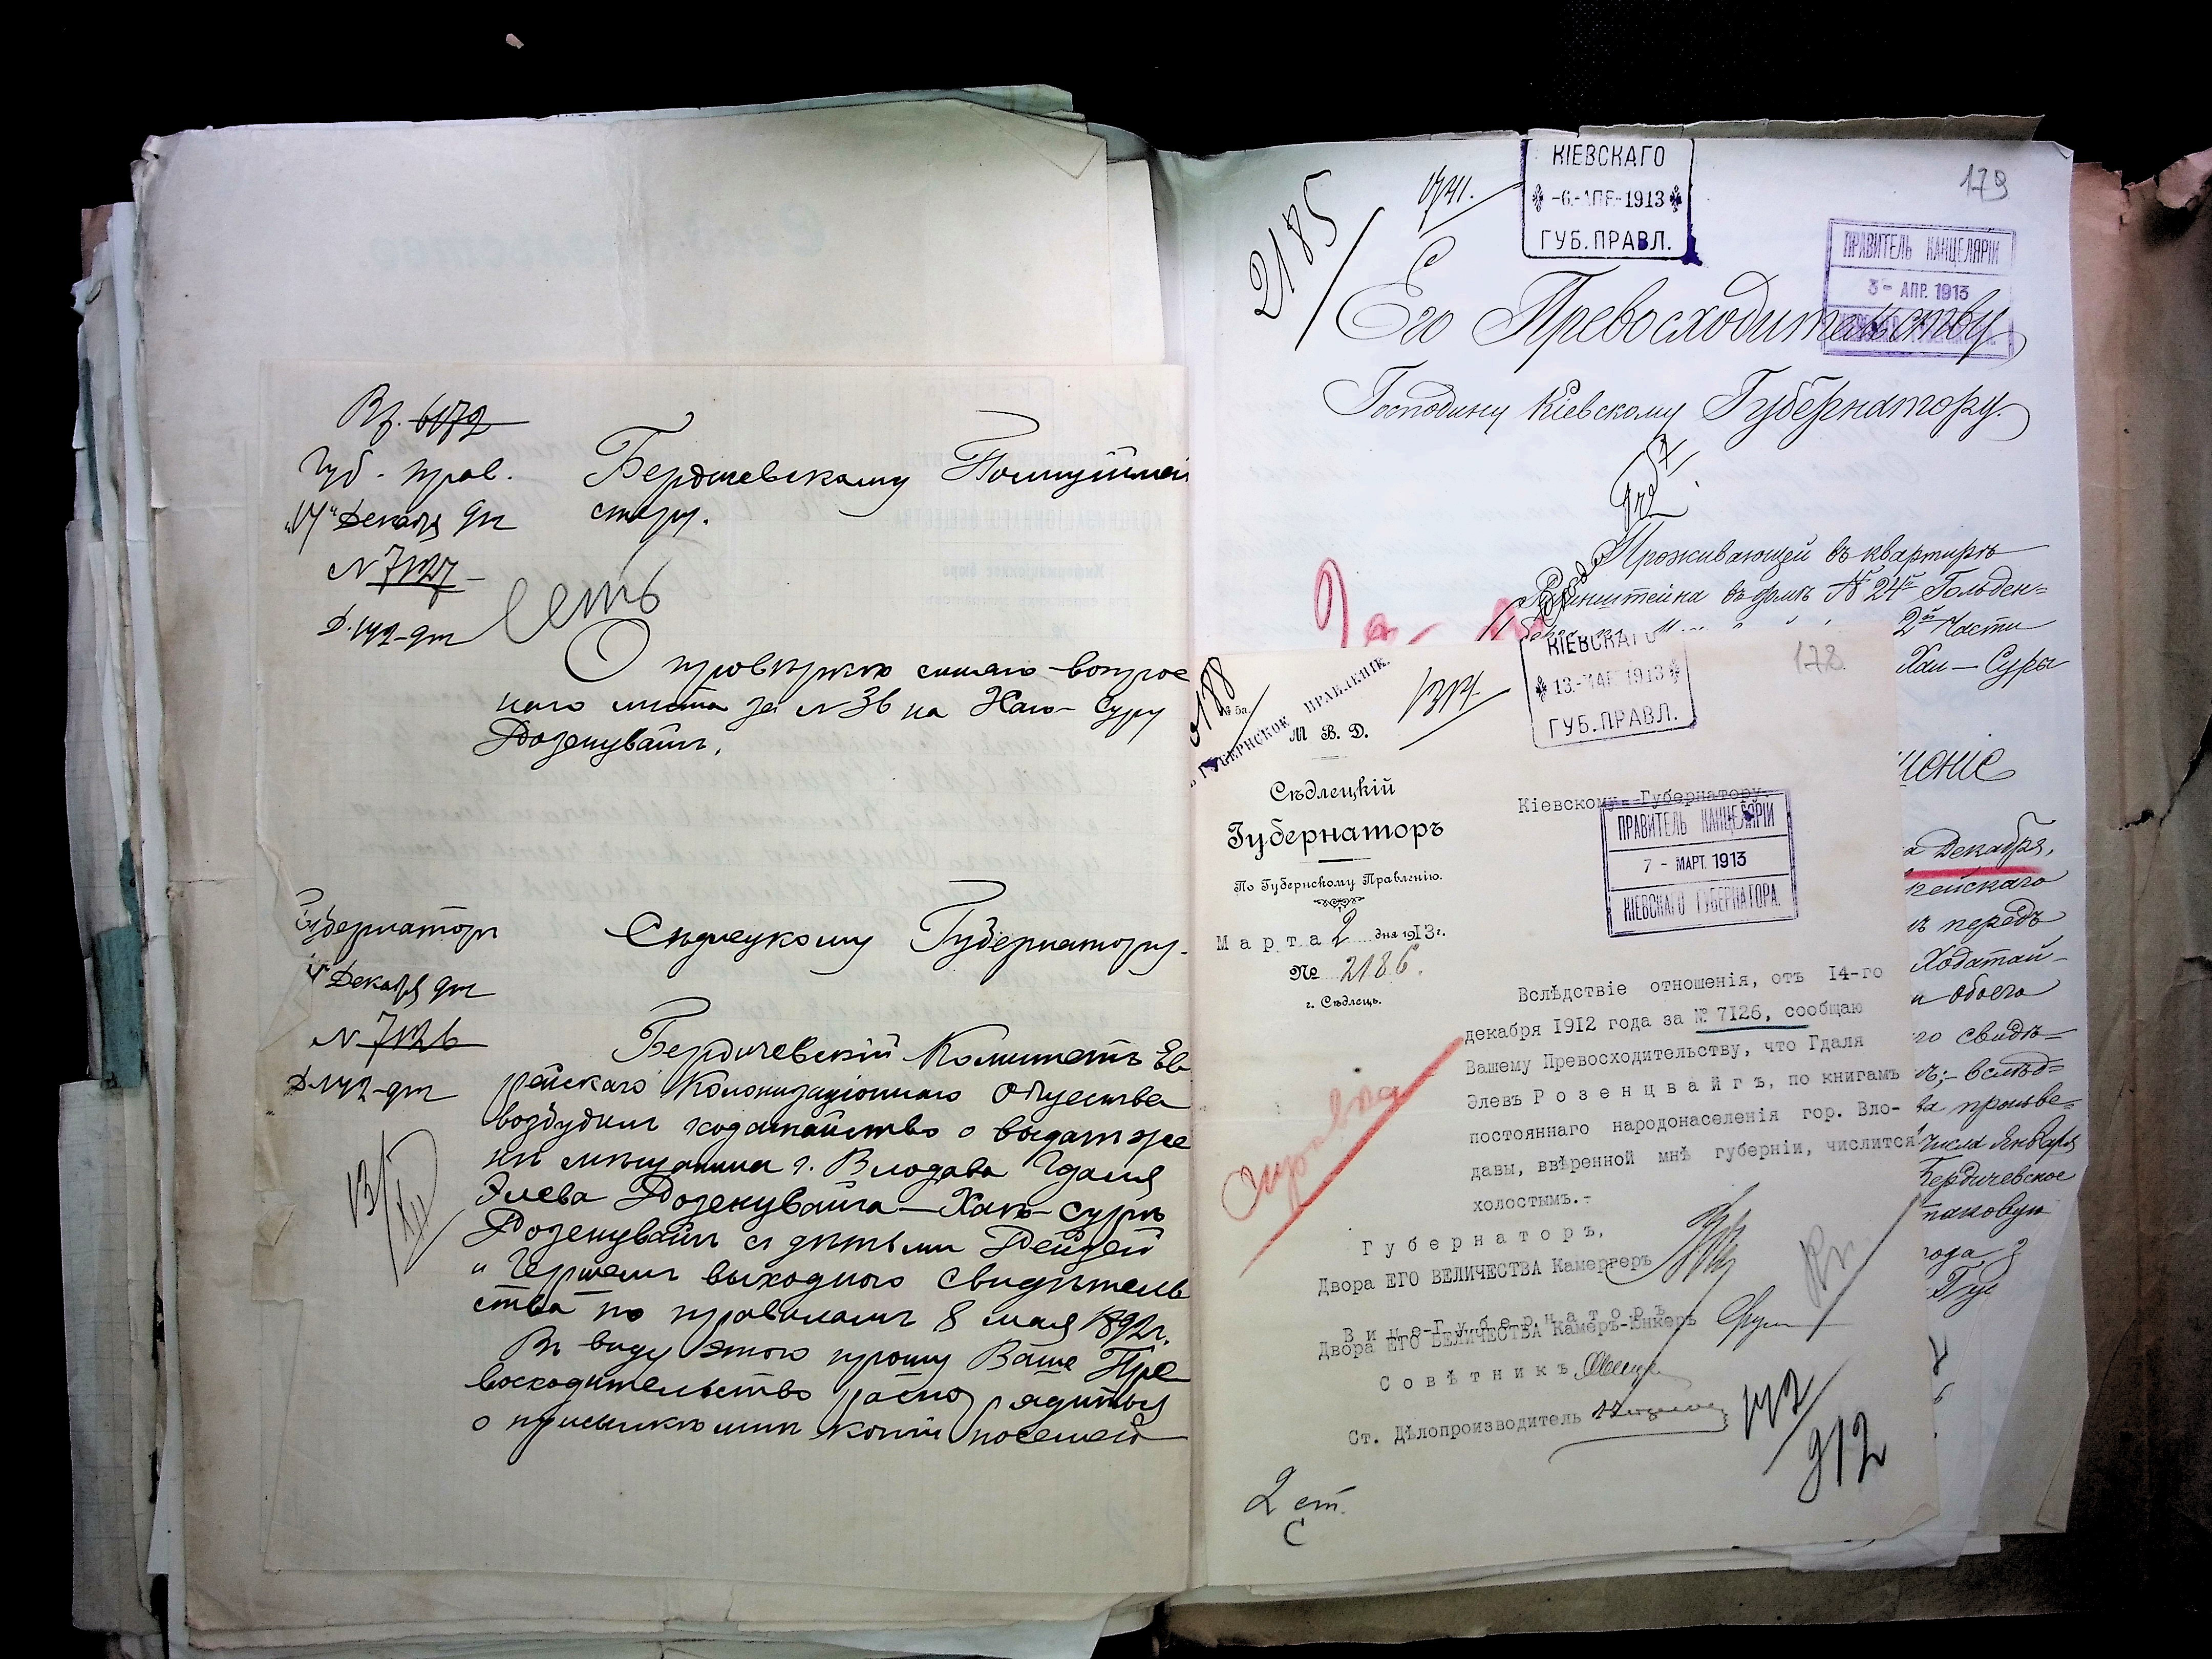 Вх. 6172
Губ. прав.
Декабря 912
N 7127
Д. 142-912
Бердичевскому Полицiймей
стеру.
Есть
О провѣркѣ синяго вопрос
наго листа за N 36 на Хаю-Суру
Розенцвайгъ.
Губернаторъ
Декабря 912
N 7126
Д. 142-912
13/XII
Сѣдлецкому Губернатору.
Бердичевскiй Комитетъ Ев
рейскаго Колонизацiоннаго Общества
возбудилъ ходатайство о выдачѣ же
нѣ мѣщанина г. Влодава Гдаля
Элева Розенцвайга — Хаѣ-Сурѣ
Розенцвайгъ съ дѣтьми Рейзей
и Гершемъ выходного свидѣтель
ства по правиламъ 8 мая 1892 г.
Въ виду этого прошу Ваше Пре
восходительство распорядиться
о присылкѣ мнѣ копiи посемей
2185
1741.
КIЕВСКАГО
-6.-АПР.-1913
ГУБ.ПРАВЛ.
179
ПРАВИТЕЛЬ КАНЦЕЛЯРIИ
3 - АПР. 1913
Его Превосходительству
Господину Кiевскому Губернатору.
Проживающей въ квартирѣ
въ домѣ № 24 Гольден=
2й Части
Хаи — Суры
шенiе
а Декабря,
рейскаго
ъ передъ
Ходатай-
и Обоего
го свидѣ=
ъ;- вслѣд=
ва произве=
числа Января
Бердичевское
таковую
года з
178
ГУБЕРНСКОЕ ПРАВЛЕНIЕ.
1314
КIЕВСКАГО
13.-МАР.1913
ГУБ.ПРАВЛ.
М. В. Д.
Сѣдлецкiй
Губернаторъ
По Губернскому Правленiю.
Марта 2 дня 1913 г.
№ 2186.
г. Сѣдлецъ.
Кiевскому Губернатору.
ПРАВИТЕЛЬ КАНЦЕЛЯРIИ
7 - МАРТ. 1913
КIЕВСКАГО ГУБЕРНАТОРА.
Вслѣдствiе отношенiя, отъ 14-го
декабря 1912 года за № 7126, сообщаю
Вашему Превосходительству, что Гдаля
Элевъ Розенцвайгъ, по книгамъ
постояннаго народонаселенiя гор. Вло-
давы, ввѣренной мнѣ губернiи, числится
холостымъ.-
Справка
Губернаторъ,
Двора ЕГО ВЕЛИЧЕСТВА Камергеръ
Вице-Губернаторъ
Двора ЕГО ВЕЛИЧЕСТВА Камеръ-Юнкеръ
Совѣтникъ
Ст. Дѣлопроизводитель
142/912
2 ст.
С